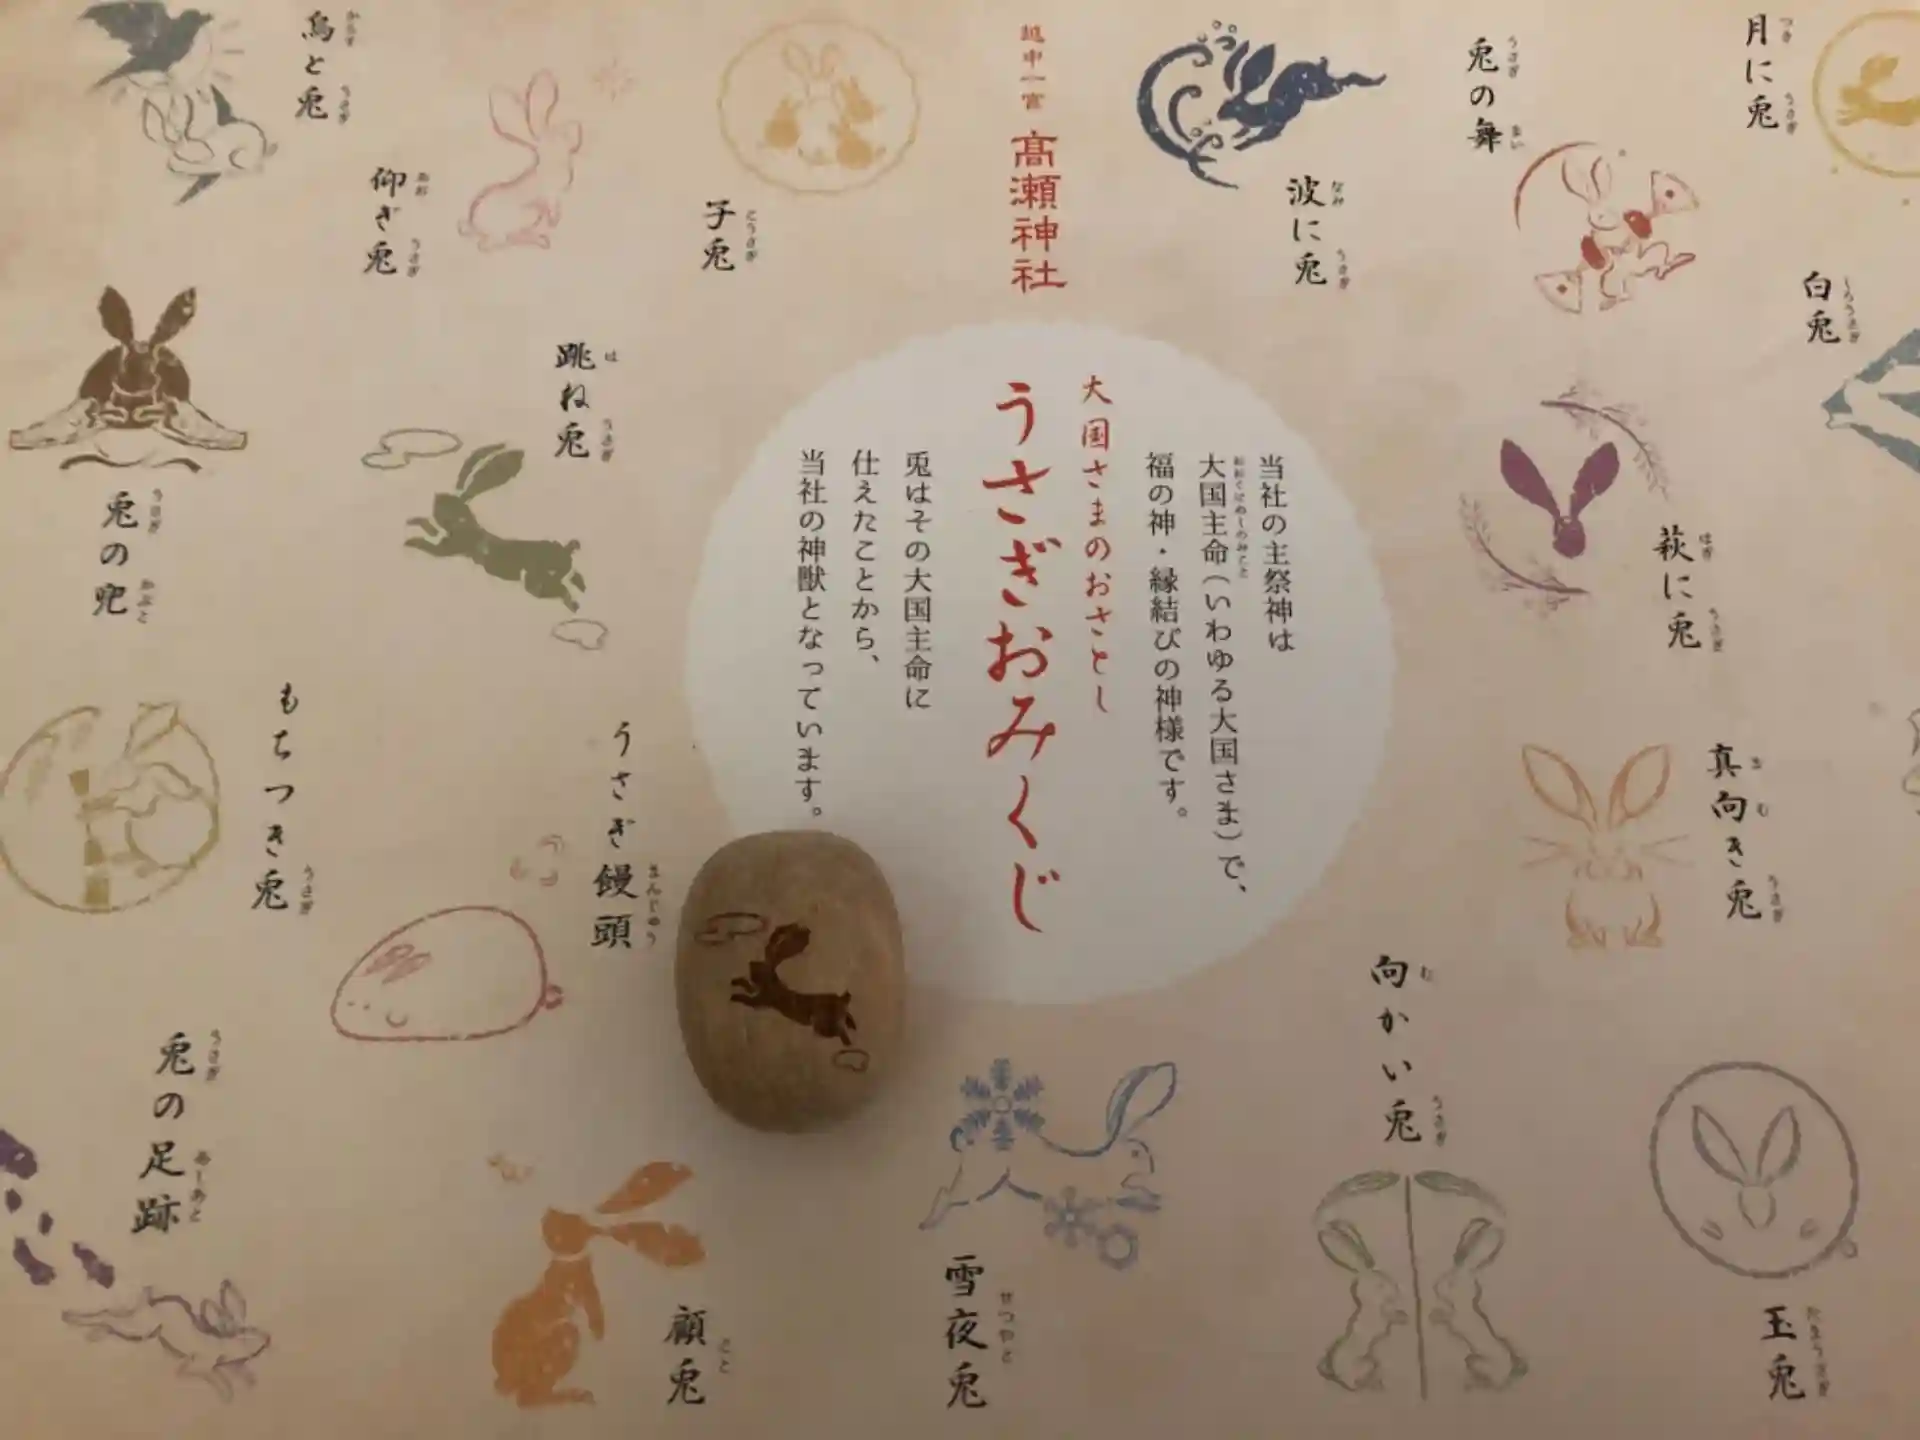 越中一宮
高瀬神社
大国さまのおさとし
うさぎおみくじ
当社の主祭神は
大国主命（いわゆる大国さま）で、
福の神・縁結びの神様です。
兎はその大国主命に
仕えたことから、
当社の神獣となっています。
月に兎
兎の舞
波に兎
白兎
萩に兎
真向き兎
向かい兎
玉兎
子兎
烏と兎
仰ぎ兎
跳ね兎
兎の兜
もちつき兎
うさぎ饅頭
兎の足跡
顧兎
雪夜兎